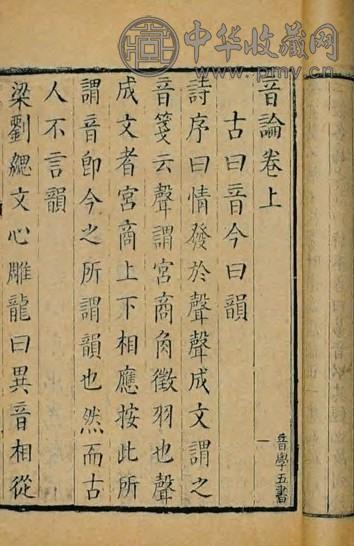 中华收藏网
www.pmv.cn
音論卷上
古曰音今曰韻
詩序曰情發於聲聲成文謂之
音箋云聲謂宮商角徵羽也聲
成文者宮商上下相應按此所
謂音即今之所謂韻也然而古
人不言韻
梁劉勰文心雕龍曰異音相從
音學五書
一